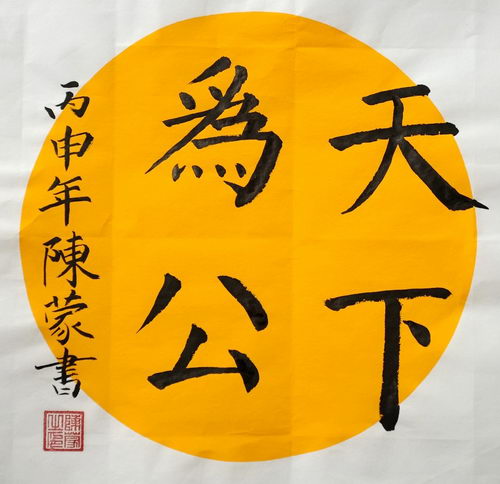 天下
為公
丙申年陳蒙書